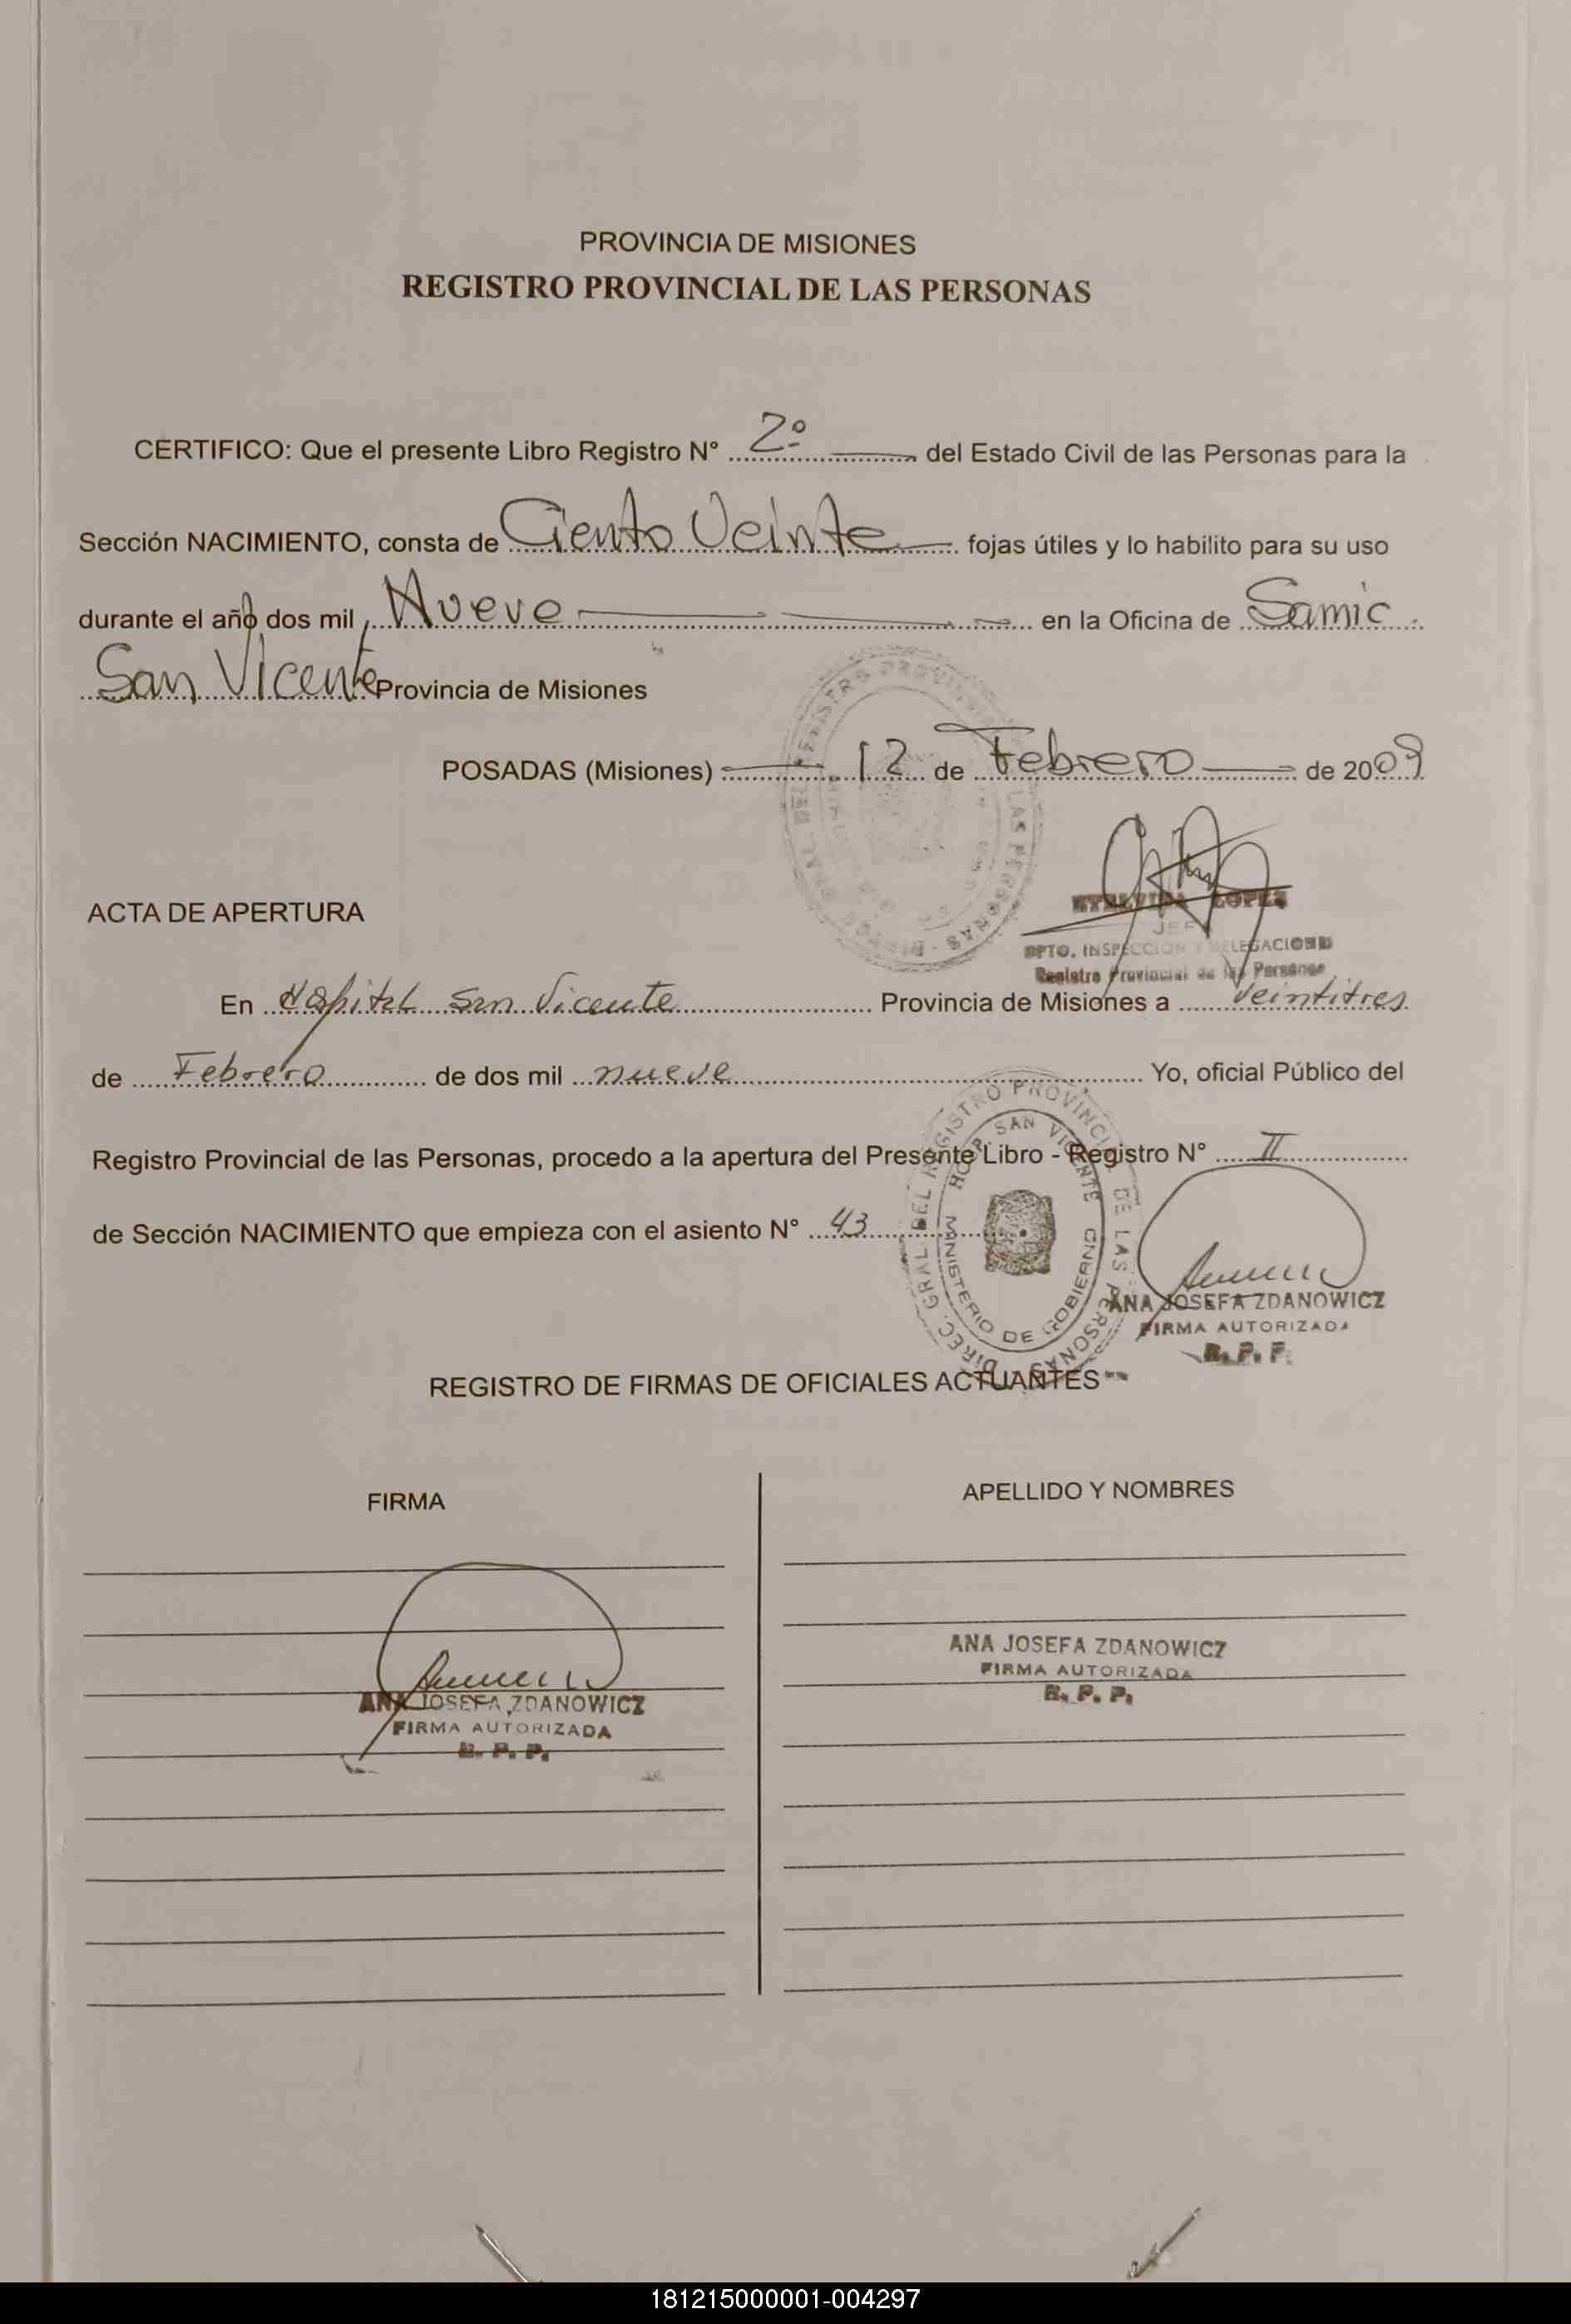 PROVINCIA DE MISIONES
REGISTRO PROVINCIAL DE LAS PERSONAS
CERTIFICO: Que el presente Libro Registro N° 2º del Estado Civil de las Personas para la
Sección NACIMIENTO, consta de Ciento Veinte fojas útiles y lo habilito para su uso
durante el año dos mil Nueve en la Oficina de Samic
San Vicente Provincia de Misiones
POSADAS (Misiones) 12 de Febrero de 2009
LOPES
JEFE
DPTO. INSPECCION Y DELEGACIONES
Registro Provincial de las Personas
ACTA DE APERTURA
En Hospital San Vicente Provincia de Misiones a veintitres
de Febrero de dos mil nueve Yo, oficial Público del
Registro Provincial de las Personas, procedo a la apertura del Presente Libro - Registro N° II
de Sección NACIMIENTO que empieza con el asiento N° 43
DIREC. GRAL DEL REGISTRO PROVINCIAL DE LAS PERSONAS
HOSP. SAN VICENTE
MINISTERIO DE GOBIERNO
ANA JOSEFA ZDANOWICZ
FIRMA AUTORIZADA
R. P. P.
REGISTRO DE FIRMAS DE OFICIALES ACTUANTES
FIRMA
APELLIDO Y NOMBRES
ANA JOSEFA ZDANOWICZ
FIRMA AUTORIZADA
R. P. P.
ANA JOSEFA ZDANOWICZ
FIRMA AUTORIZADA
R. P. P.
181215000001-004297